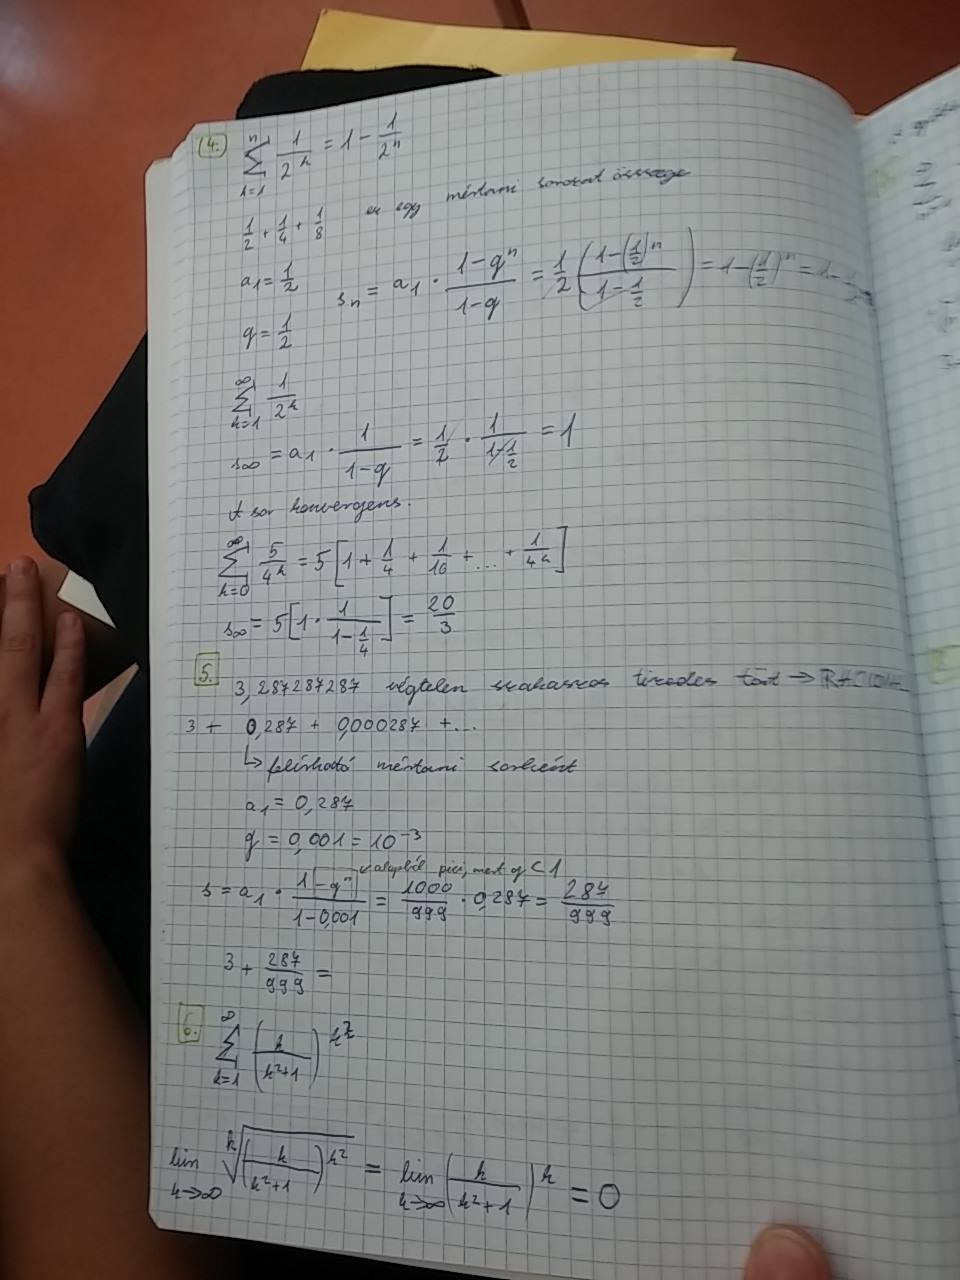 4. \sum_{k=1}^{n} \frac{1}{2^k} = 1 - \frac{1}{2^n}
\frac{1}{2} + \frac{1}{4} + \frac{1}{8} ez egy mértani sorozat összege
a_1 = \frac{1}{2}
s_n = a_1 \cdot \frac{1-q^n}{1-q} = \frac{1}{2} \left( \frac{1-(\frac{1}{2})^n}{1-\frac{1}{2}} \right) = 1-(\frac{1}{2})^n = 1-
q = \frac{1}{2}
\sum_{k=1}^{\infty} \frac{1}{2^k}
s_\infty = a_1 \cdot \frac{1}{1-q} = \frac{1}{2} \cdot \frac{1}{1-\frac{1}{2}} = 1
A sor konvergens.
\sum_{k=0}^{\infty} \frac{5}{4^k} = 5 \left[ 1 + \frac{1}{4} + \frac{1}{16} + \dots + \frac{1}{4^k} \right]
s_\infty = 5 \left[ 1 \cdot \frac{1}{1-\frac{1}{4}} \right] = \frac{20}{3}
5.
3,287287287 végtelen szakaszos tizedes tört →
3 + 0,287 + 0,000287 + ...
↳ felírható mértani sorként
a_1 = 0,287
q = 0,001 = 10^{-3}
alapból pici, mert q < 1
s = a_1 \cdot \frac{1-q^n}{1-0,001} = \frac{1000}{999} \cdot 0,287 = \frac{287}{999}
3 + \frac{287}{999} =
6. \sum_{k=1}^{\infty} \left( \frac{k}{k^2+1} \right)^{k^2}
\lim_{k→∞} \sqrt[k]{\left( \frac{k}{k^2+1} \right)^{k^2}} = \lim_{k→∞} \left( \frac{k}{k^2+1} \right)^k = 0